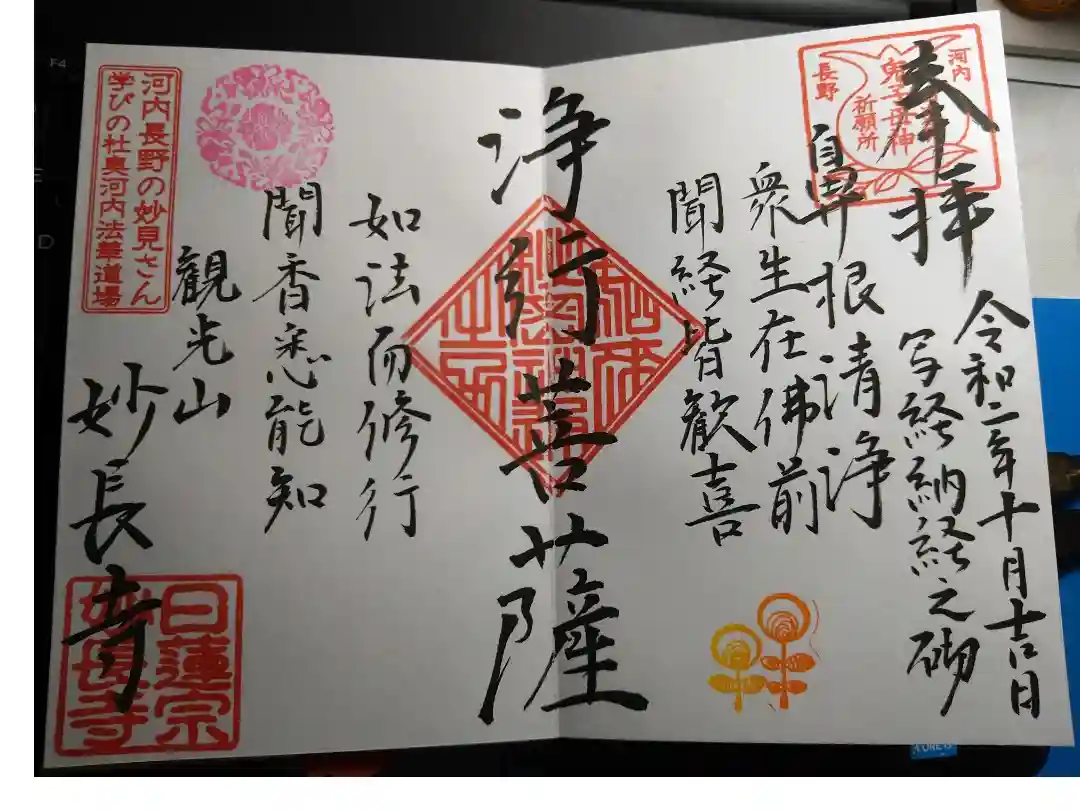 奉拝
河内
鬼子母神
祈願所
長野
令和二年十月吉日
写経納経之砌
鼻根清浄
衆生在佛前
聞経皆歓喜
浄行菩薩
如法而修行
聞香悉能知
観光山
妙長寺
河内長野の妙見さん
学びの社奥河内法華道場
日蓮宗
妙長寺
F4
D